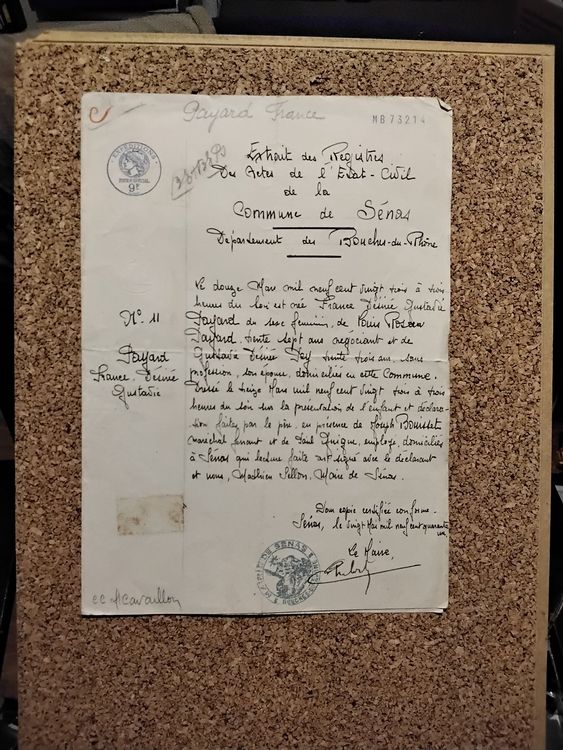 Payard France
MB73214
EXPEDITIONS
9F
Extrait des Registres
Des Actes de l'Etat-Civil
de la
Commune de Sénas
Département des Bouches-du-Rhône
N° 11
Payard
France, Désirée
Gustavie
Le douze Mars mil neuf cent vingt trois à trois
heures du soir est née France Désirée Gustavie
Payard du sexe féminin, de Louis
Payard, trente sept ans négociant et de
Gustavie Désirée Dey trente trois ans, sans
profession, son épouse, domiciliés en cette Commune.
Dressé le treize Mars mil neuf cent vingt trois à trois
heures du soir sur la présentation de l'enfant et déclara-
tion faites par le père, en présence de Joseph Bousset
maréchal ferrant et de Paul Quique, employé, domiciliés
à Sénas qui lecture faite ont signé avec le déclarant
et nous, Mathieu Sellon, Maire de Sénas.
Pour copie certifiée conforme.
Sénas, le vingt Mai mil neuf cent quarante
un,
Le Maire,
MAIRIE DE SENAS
cavaillon